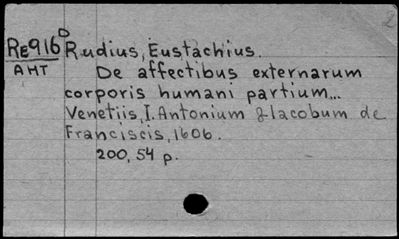 RE916D Rudius, Eustachius.
AHT
De affectibus externarum
corporis humani partium...
Venetiis, I. Antonium & Iacobum de
Franciscis, 1606.
200, 54 p.